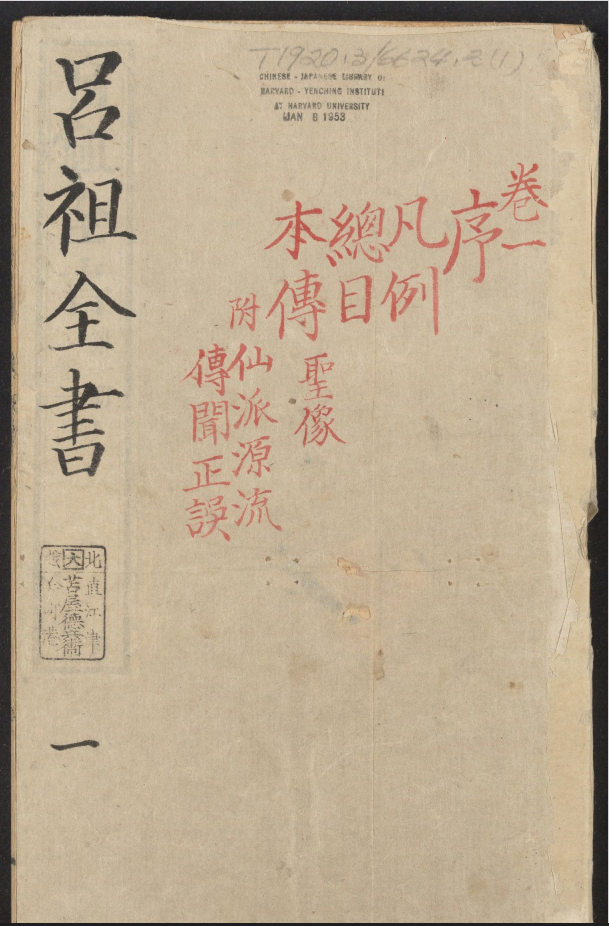 T1920.3/6624.2(1)
CHINESE - JAPANESE LIBRARY OF
HARVARD - YENCHING INSTITUTE
AT HARVARD UNIVERSITY
JAN 8 1953
卷一
序
凡例
總目
本傳 聖像
附 仙派源流
傳聞正誤
呂祖全書
北直江津
大 苫屋德兵衛
港
一